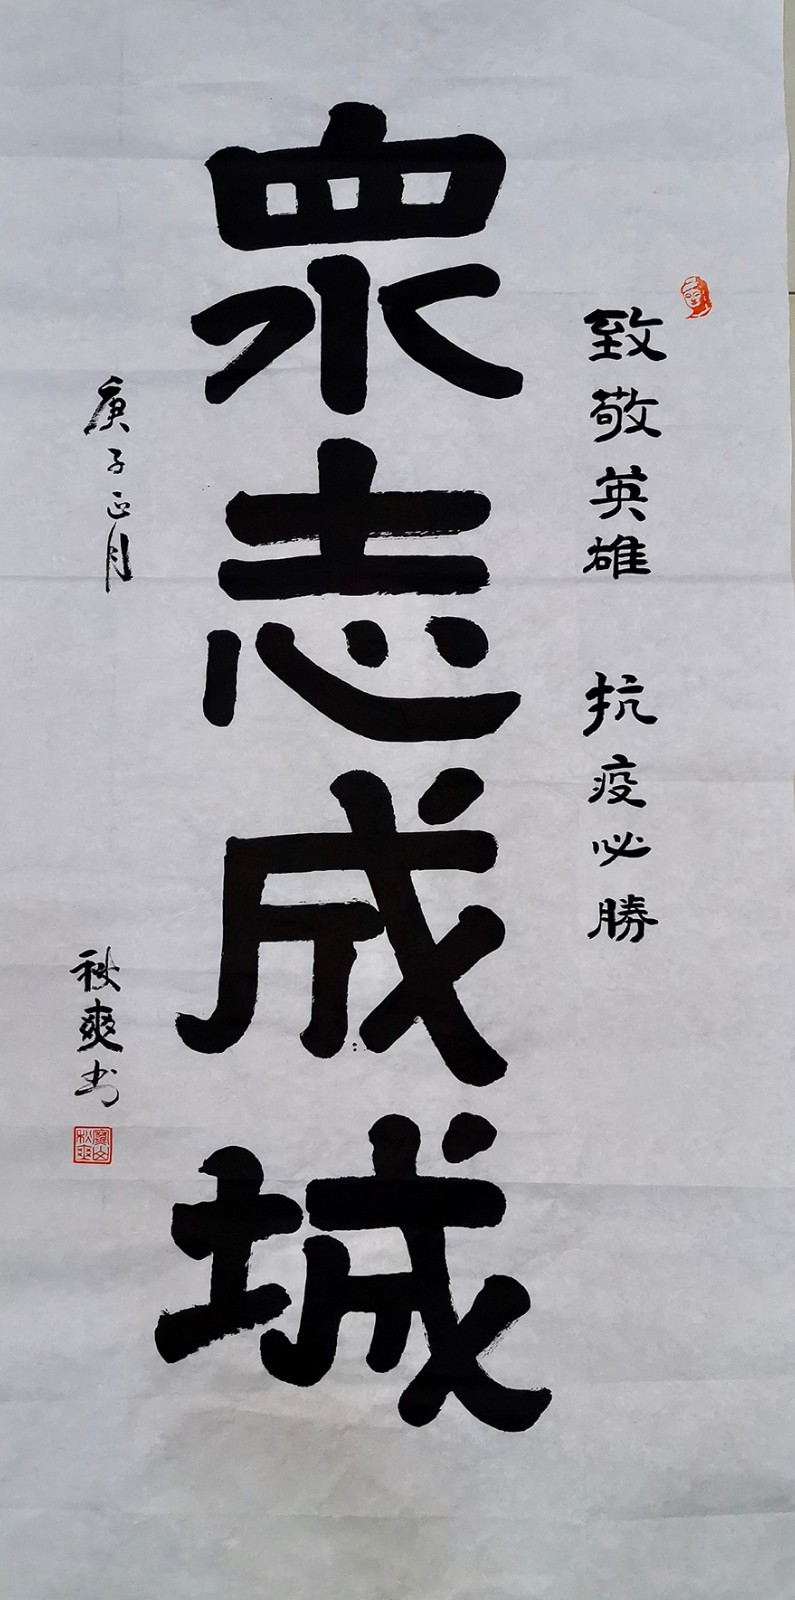 致敬英雄 抗疫必勝
眾志成城
庚子正月
秋爽书